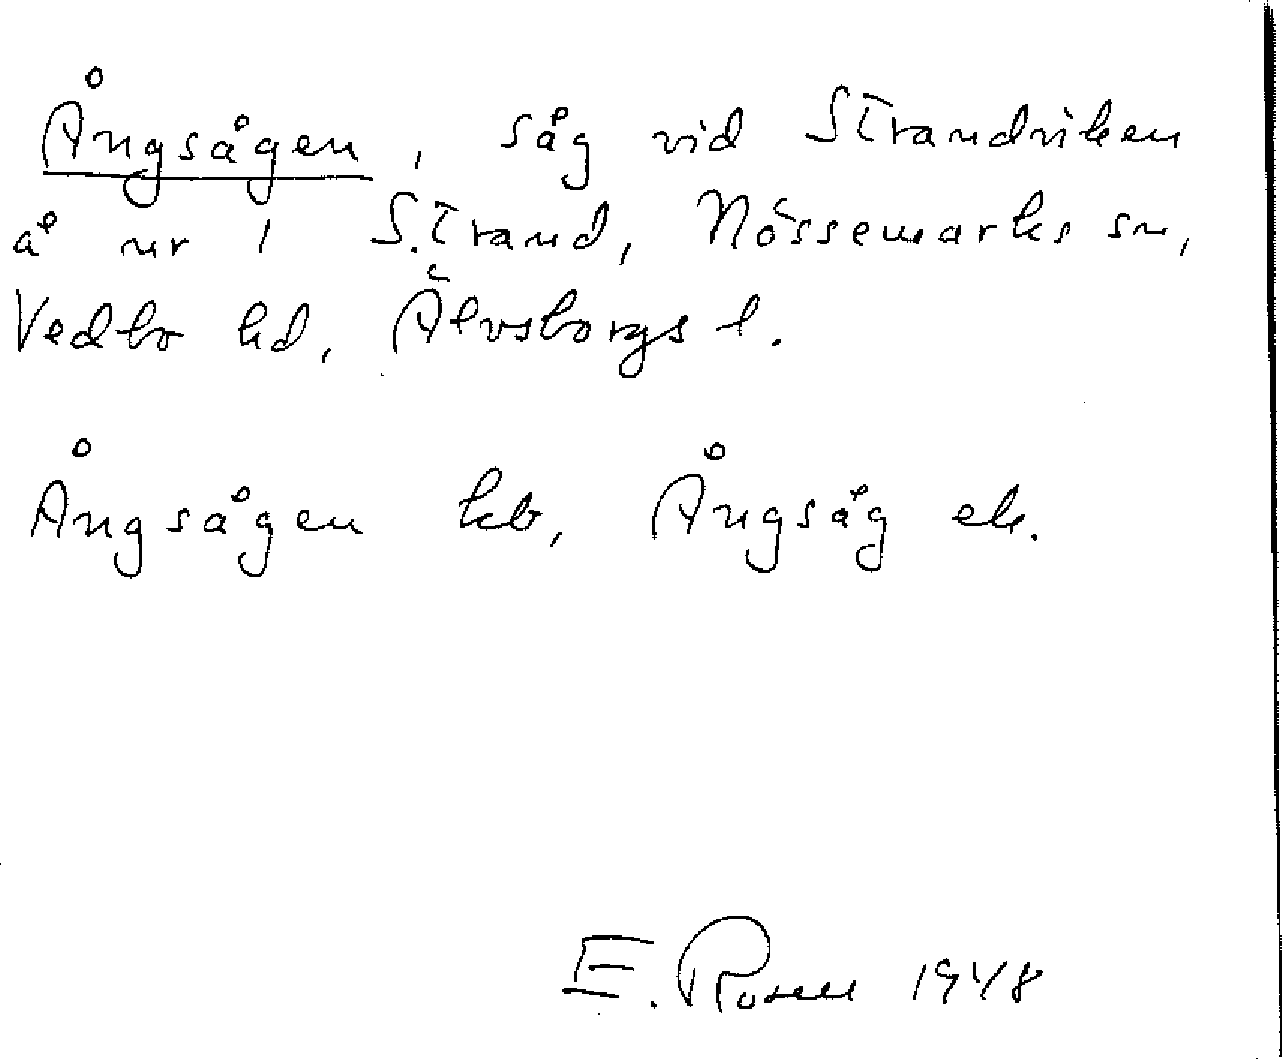 Ångsågen, såg vid Strandviken
å nr 1 S. Strand, Nössemarks sn,
Vedbo hd, Älvsborgs l.
Ångsågen kb, Ångsåg ek.
E. Rosen 1948